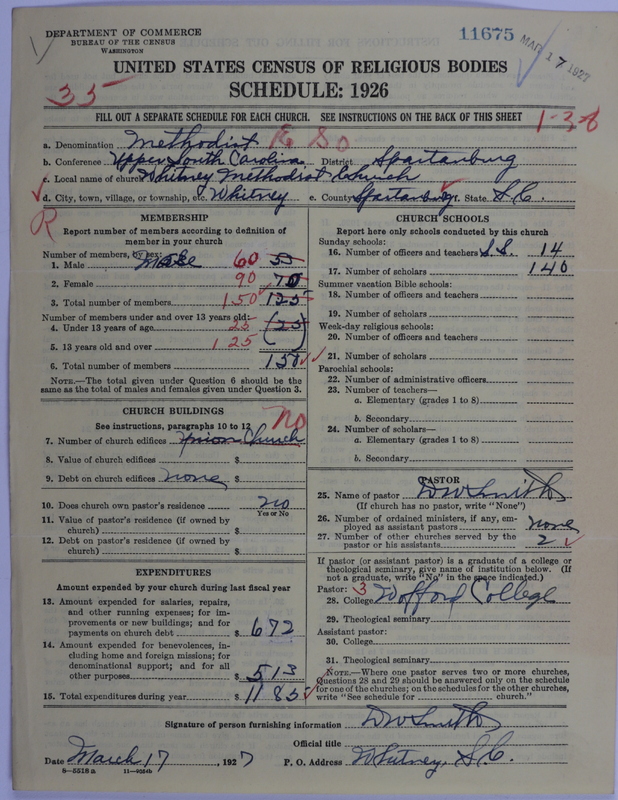 DEPARTMENT OF COMMERCE
BUREAU OF THE CENSUS
WASHINGTON
11675
MAR 17 1927
UNITED STATES CENSUS OF RELIGIOUS BODIES
SCHEDULE: 1926
35
FILL OUT A SEPARATE SCHEDULE FOR EACH CHURCH. SEE INSTRUCTIONS ON THE BACK OF THIS SHEET
1-3-8
a. Denomination Methodist E. So
b. Conference Upper South Carolina District Spartanburg
c. Local name of church Whitney Methodist Church
d. City, town, village, or township, etc. Whitney e. County Spartanburg f. State S.C.
R
MEMBERSHIP
Report number of members according to definition of
member in your church
Number of members, by sex:
1. Male Male 60 55
2. Female 90 70
3. Total number of members 150 125
Number of members under and over 13 years old:
4. Under 13 years of age 25 (25)
5. 13 years old and over 125
6. Total number of members 150
NOTE.—The total given under Question 6 should be the
same as the total of males and females given under Question 3.
CHURCH BUILDINGS
See instructions, paragraphs 10 to 12
no
7. Number of church edifices Union Church
8. Value of church edifices $
9. Debt on church edifices none $
10. Does church own pastor's residence no
Yes or No
11. Value of pastor's residence (if owned by
church) $
12. Debt on pastor's residence (if owned by
church) $
EXPENDITURES
Amount expended by your church during last fiscal year
13. Amount expended for salaries, repairs,
and other running expenses; for im-
provements or new buildings; and for
payments on church debt $ 672
14. Amount expended for benevolences, in-
cluding home and foreign missions; for
denominational support; and for all
other purposes $ 513
15. Total expenditures during year $ 1185
CHURCH SCHOOLS
Report here only schools conducted by this church
Sunday schools:
16. Number of officers and teachers S.S. 14
17. Number of scholars 140
Summer vacation Bible schools:
18. Number of officers and teachers
19. Number of scholars
Week-day religious schools:
20. Number of officers and teachers
21. Number of scholars
Parochial schools:
22. Number of administrative officers
23. Number of teachers—
a. Elementary (grades 1 to 8)
b. Secondary
24. Number of scholars—
a. Elementary (grades 1 to 8)
b. Secondary
PASTOR
25. Name of pastor DW Smith
(If church has no pastor, write "None")
26. Number of ordained ministers, if any, em-
ployed as assistant pastors none
27. Number of other churches served by the
pastor or his assistants 2
If pastor (or assistant pastor) is a graduate of a college or
theological seminary, give name of institution below. (If
not a graduate, write "No" in the space indicated.)
Pastor: 3
28. College Wofford College
29. Theological seminary
Assistant pastor:
30. College
31. Theological seminary
NOTE.—Where one pastor serves two or more churches,
Questions 28 and 29 should be answered only on the schedule
for one of the churches; on the schedules for the other churches,
write "See schedule for church."
Signature of person furnishing information DW Smith
Official title
Date March 17, 1927 P. O. Address Whitney, S.C.
8—5518 a 11—9554b